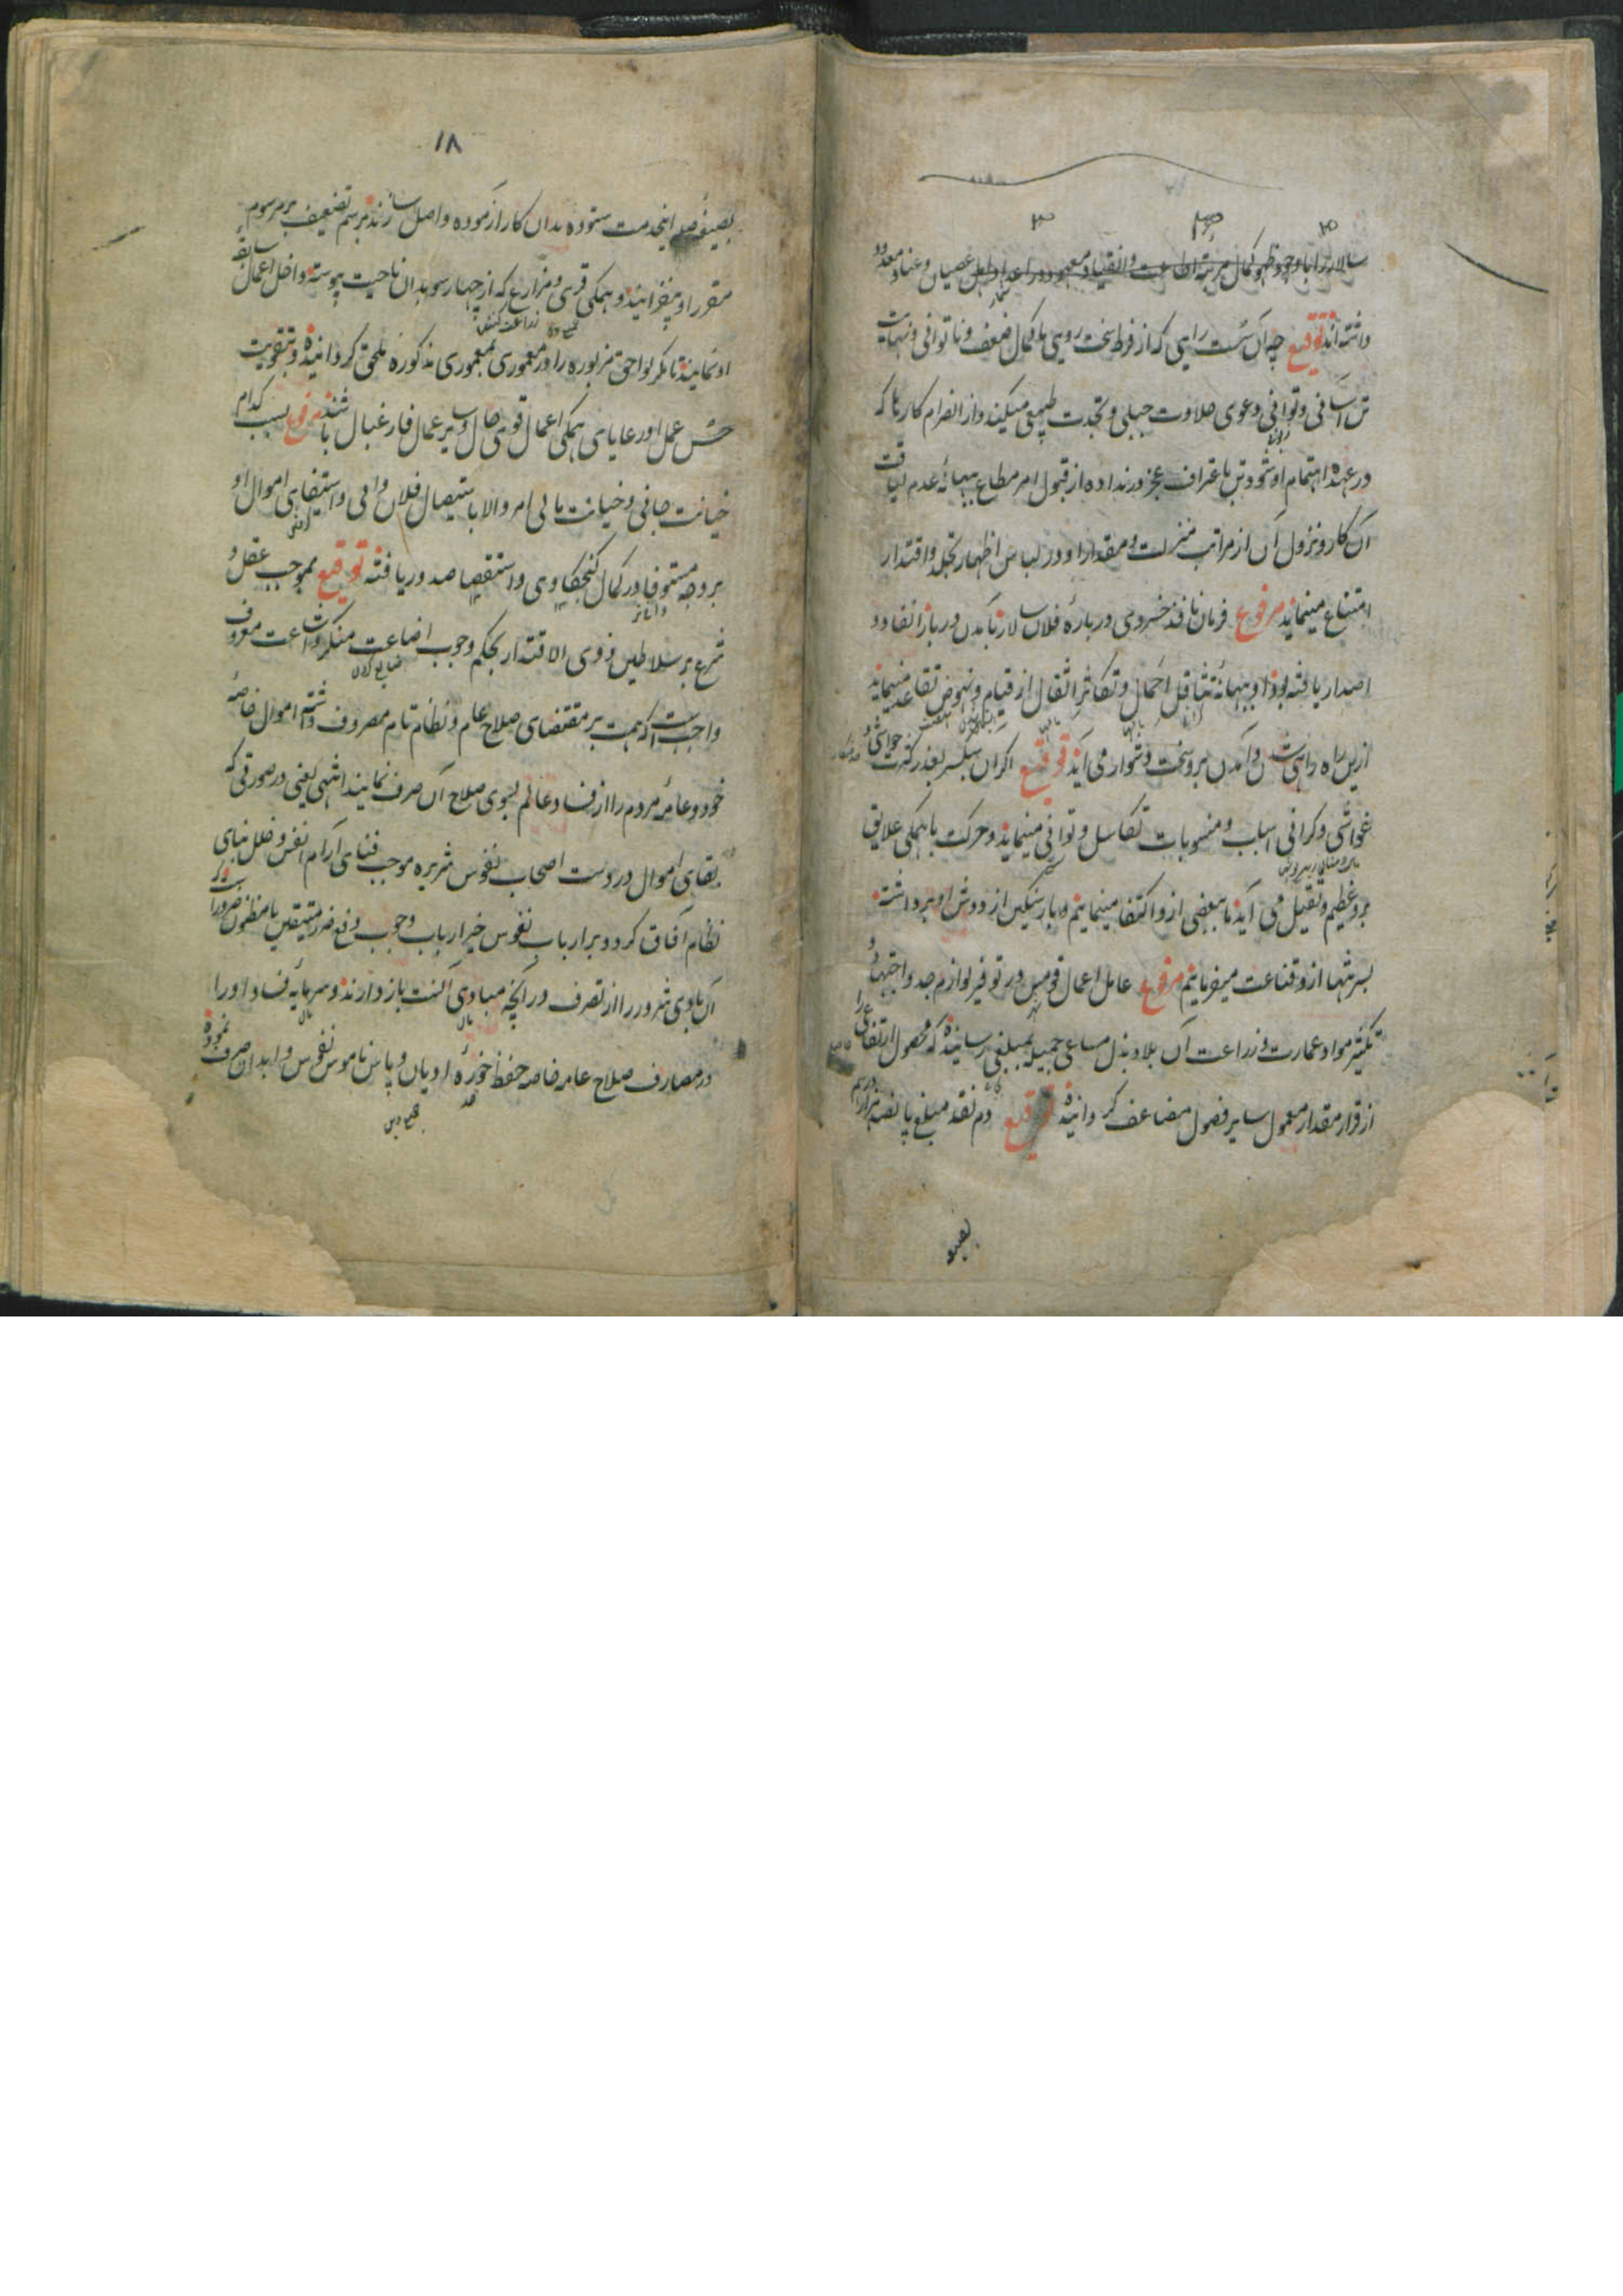 سالار را با وجود ظهور کمال مرتبه اطاعت و انقیاد معهود در اعداد اهل عصیان و عناد معدود
داشته‌اند توقیع چه آن سست رایی که از فرط سخت رویی با کمال ضعف و ناتوانی و نهایت
تن آسانی و توانی دعوی جلادت جبلی و نجدت طبیعی میکند و از انصرام کارها که
در عهده اهتمام او شود تن باعتراف عجز در نداده از قبول امر مطاع ببهانه عدم لیاقت
آن کار و نزول آن از مراتب منزلت و مقدار او در لباس اظهار تجلد و اقتدار
امتناع مینماید مرفوع فرمان نافذ خسروی درباره فلان سالار بآمدن دربار انفاد و
اصدار یافته بود او ببهانه تثاقل احمال و تکاثر اثقال از قیام و نهوض تقاعد مینماید
ازین راه راهی شدن و آمدن برو سخت دشوار می آید توقیع اگر آن سبکسر بعذر کثرت حواشی و
غواشی و گرانی اسباب و منسوبات تکاسل و توانی مینماید و حرکت با همگی علایق
برو عظیم و ثقیل می آید ما ببعضی ازو اکتفا مینماییم و بار سنگین از دوش او برداشته
بسر تنها ازو قناعت میفرماییم مرفوع عامل اعمال قومس در توفیر لوازم جد و اجتهاد و
تکثیر مواد عمارت و زراعت آن بلاد بذل مساعی جمیله بمبلغی رسانیده که محصول ارتفاع را
از قرار مقدار معمول سایر فصول مضاعف گردانیده توقیع دم نقد مبلغ پانصد هزار درهم
بصیغه
۱۸
بصیغه صله اینخدمت ستوده بدان کار آزموده واصل سازند و برسم تضعیف بر مرسوم
مقرر او بیفزایند و همگی قری و مزارع که از چهار سو بدان ناحیت پیوسته داخل اعمال سابقه
او نمایند تا مگر لواحق مزبوره را در معموری بمعموری مذکوره ملحق گردانیده و بتقویت
حسن عمل او رعایای همگی اعمال قوی حال و سایر عمال فارغبال باشند مرفوع بسبب کدام
خیانت جانی و خیانت مالی امر والا باستیصال فلان والی و استیفای اموال او
بر وجه مستوفا در کمال کنجکاوی و استقصا صدور یافته توقیع بموجب عقل و
شرع بر سلاطین ذوی الاقتدار بحکم وجوب اضاعت منکر و اشاعت معروف
واجبست که همت بر مقتضای صلاح عالم و نظام تام مصروف داشته اموال خاصه
خود و عامه مردم را از فساد عالم بسوی صلاح آن صرف نمایند انتهی یعنی در صورتی که
بقای اموال در دست اصحاب نفوس شریره موجب فنای آرام انفس و خلل بنای
نظام آفاق گردد بر ارباب نفوس خیر ارباب وجوب دفع ضرر متیقن یا مظنون
آن بادی شرور را از تصرف در آنچه مبادی آنست باز دارند و سرمایه فساد او را
در مصارف صلاح عامه خاصه حفظ حوزه ادیان و پاس ناموس نفوس و ابدان صرف نموده